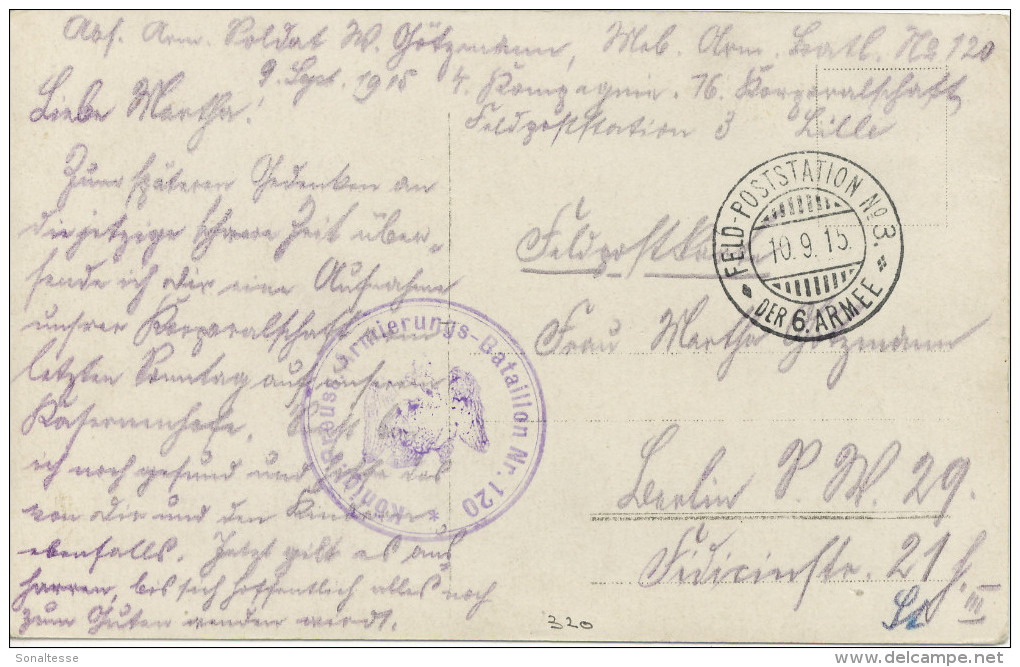 Abs. Arm. Soldat W. Götzmann, Mob. Arm. Batl. No 120
9. Sept. 1915 4. Kompagnie. 16. Korporalschaft
Feldpoststation 3 Lille
Liebe Martha!
Zum späteren Gedenken an
die jetzige schwere Zeit über-
sende ich Dir eine Aufnahme
unsrer Korporalschaft vom
letzten Sonntag auf unserem
Kasernenhofe. Sonst
ich noch gesund und hoffe das
von Dir und den Kindern
ebenfalls. Jetzt gilt es aus-
harren, bis sich hoffentlich alles noch
zum Guten wenden wird.
Feldpostkarte
Frau Martha Götzmann
Berlin S. W. 29.
Fidicinstr. 21
III
320
FELD-POSTSTATION No. 3.
10.9.15.
DER 6. ARMEE
* Königl. Preuss. Armierungs-Bataillon Nr. 120
Sonaltesse
www.delcampe.net